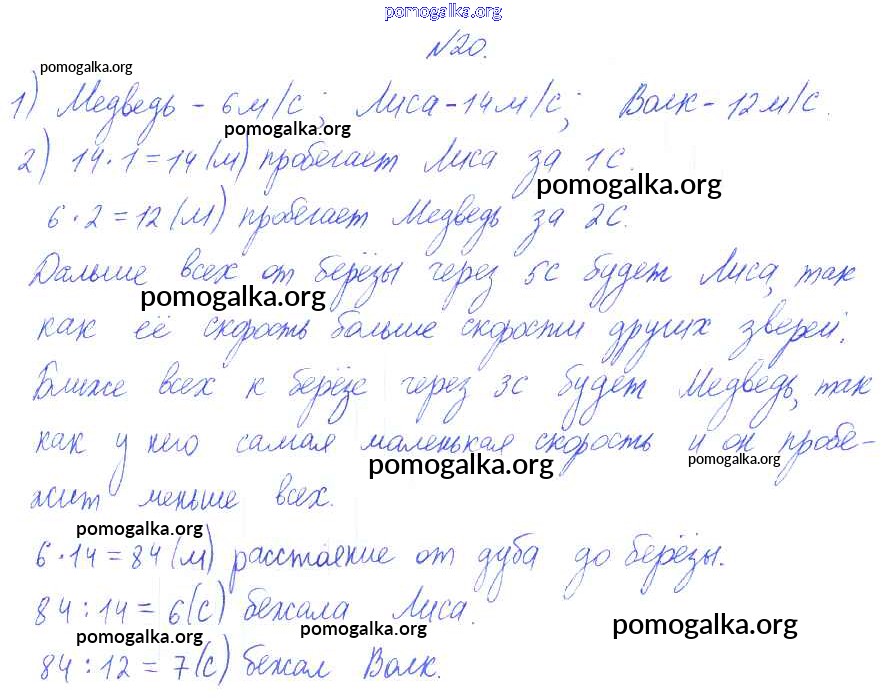 pomogalka.org
№20.
pomogalka.org
1) Медведь - 6 м/с; Лиса - 14 м/с; Волк - 12 м/с.
pomogalka.org
2) 14 · 1 = 14 (м) пробегает Лиса за 1с.
pomogalka.org
6 · 2 = 12 (м) пробегает Медведь за 2с.
Дальше всех от берёзы через 5с будет Лиса, так
pomogalka.org
как её скорость больше скорости других зверей.
Ближе всех к берёзе через 3с будет Медведь, так
как у него самая маленькая скорость и он пробе-
pomogalka.org pomogalka.org
жит меньше всех.
pomogalka.org
6 · 14 = 84 (м) расстояние от дуба до берёзы.
84 : 14 = 6 (с) бежала Лиса.
pomogalka.org pomogalka.org pomogalka.org
84 : 12 = 7 (с) бежал Волк.